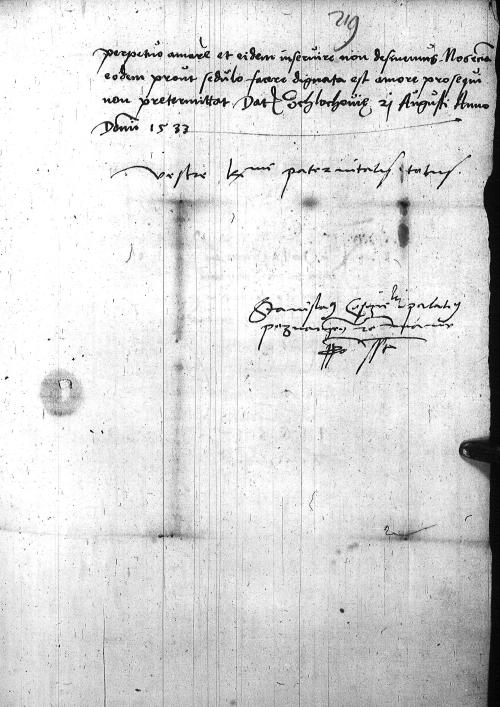 219
perpetuo amare et eidem inservire non desinemus. Nos etia
eodem prout sedulo facere dignata est amore prosequi
non pretermittat Dat Schlochoviæ 21 Augusti Anno
Domi 1533
Vestre paternitatis totus
Stanislaus palatinus
manu
sst